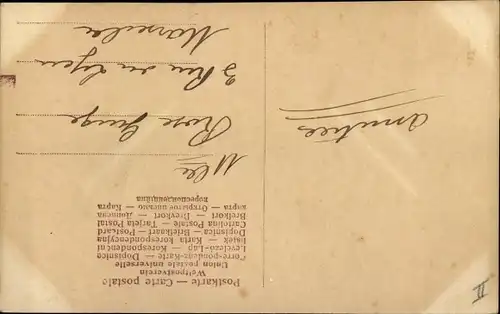 Postkarte — Carte postale
Weltpostverein
Union postale universelle
Correspondenz-Karte — Dopisnice
Levelező-Lap — Korespondent
lisek — Karta korespondencyjna
Dopisnica — Briefkaart — Postcard
Cartolina Postale — Tarjeta Postal
Brefkort — Brevkort — Дописна
карта — Открытое письмо — Карта
Mlle
Rose
3 Rue du
Marseille
Amitiés
II